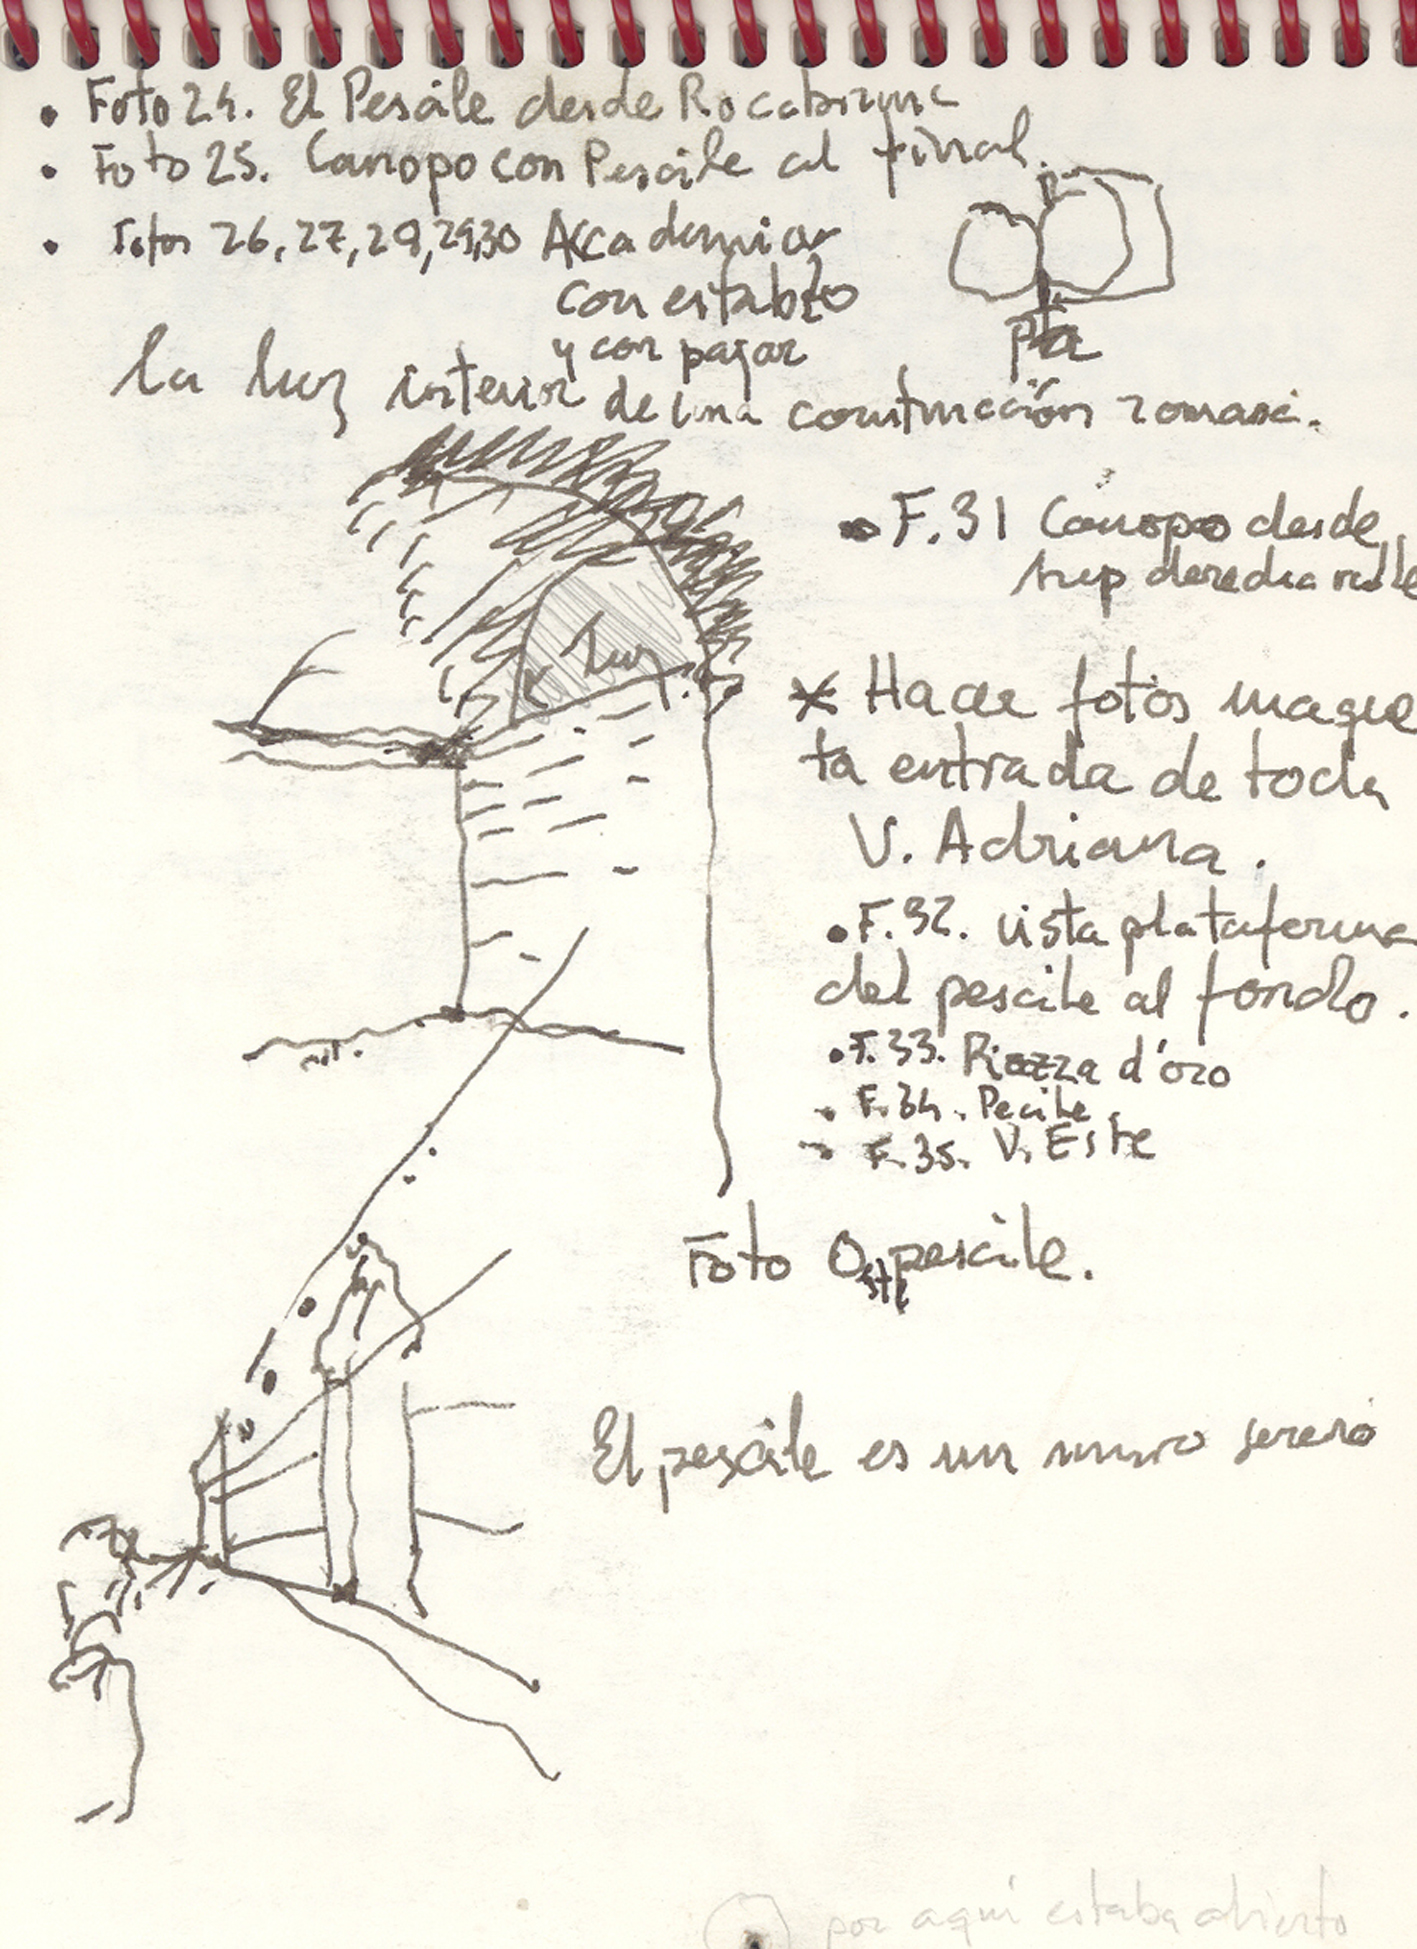 • Foto 24. El Pescile desde Rocabruna
• Foto 25. Canopo con Pescile al final.
• Fotos 26, 27, 28, 29, 30 Accademia
con establo
y con pajar
pta
la luz interior de una construcción romana.
luz
• F. 31 Canopo desde
sup derecha valle
* Hacer fotos maque
ta entrada de toda
V. Adriana.
• F. 32. vista plataforma
del pescile al fondo.
• F. 33. Piazza d'oro
• F. 34. Pecile
• F. 35. V. Este
Foto Oste pescile.
El pescile es un muro sereno
por aquí estaba abierto